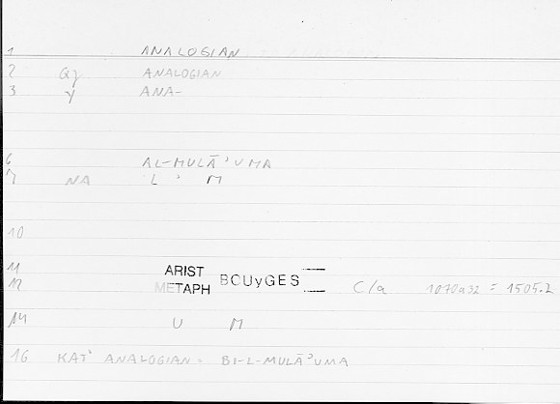 1 ANALOGIAN
2 Qy ANALOGIAN
3 ý ANA-
6 AL-MULĀʾUMA
7 NA L ʾ M
10
11 ARIST
12 METAPH BOUyGES C/a 1070a32 = 1505.2
14 U M
16 KATʾ ANALOGIAN - BI-L-MULĀʾUMA